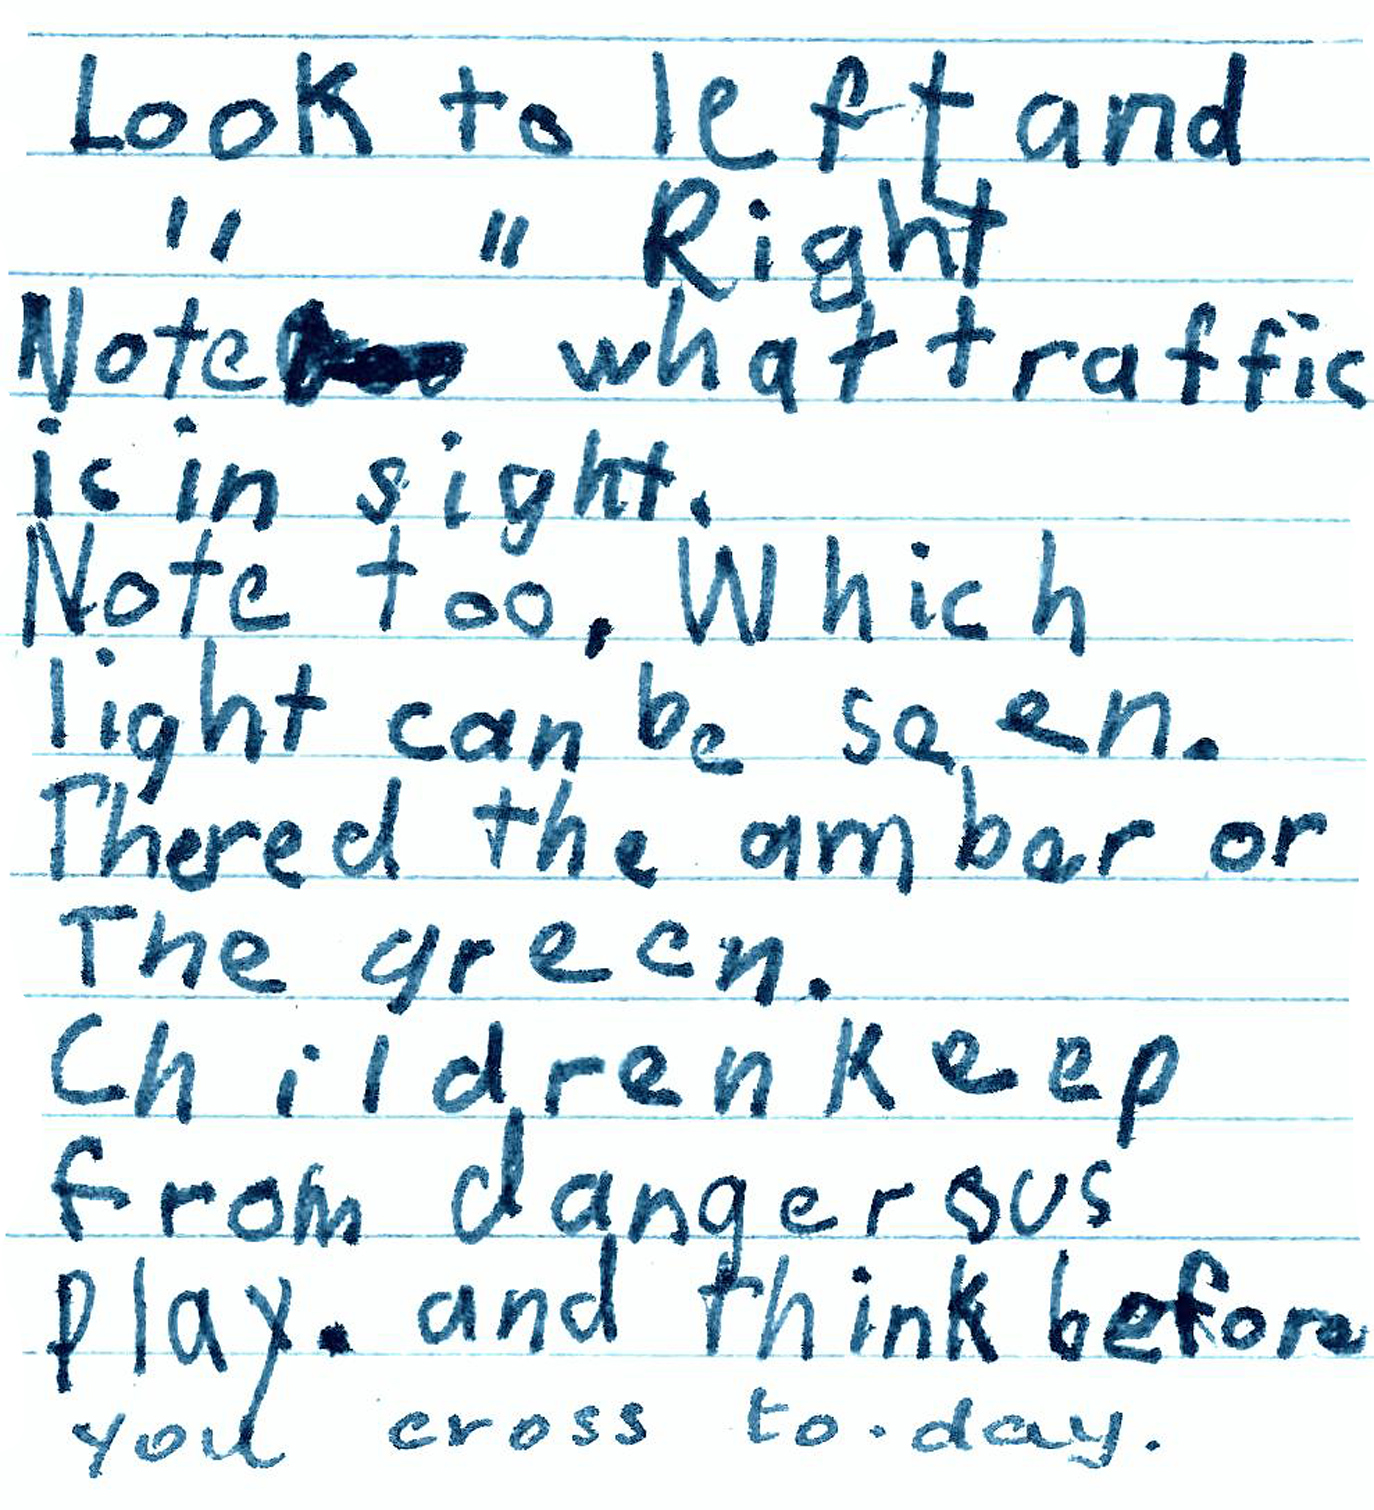 Look to left and
" " Right
Note what traffic
is in sight.
Note too, Which
light can be seen.
Thered the ambar or
The green.
Children keep
from dangerous
play. and think before
you cross to.day.